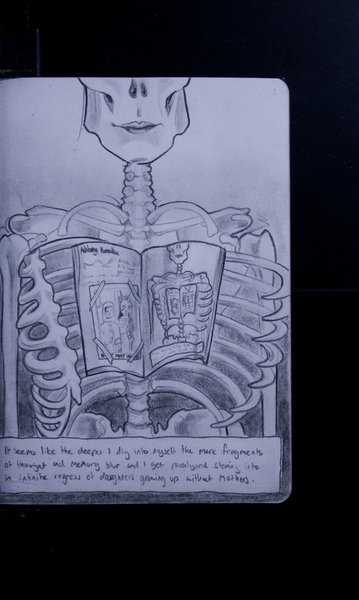 It seems like the deeper I dig into myself the more fragments
of thought and memory blur and I get paralysed staring into
an infinite regress of daughters growing up without mothers.